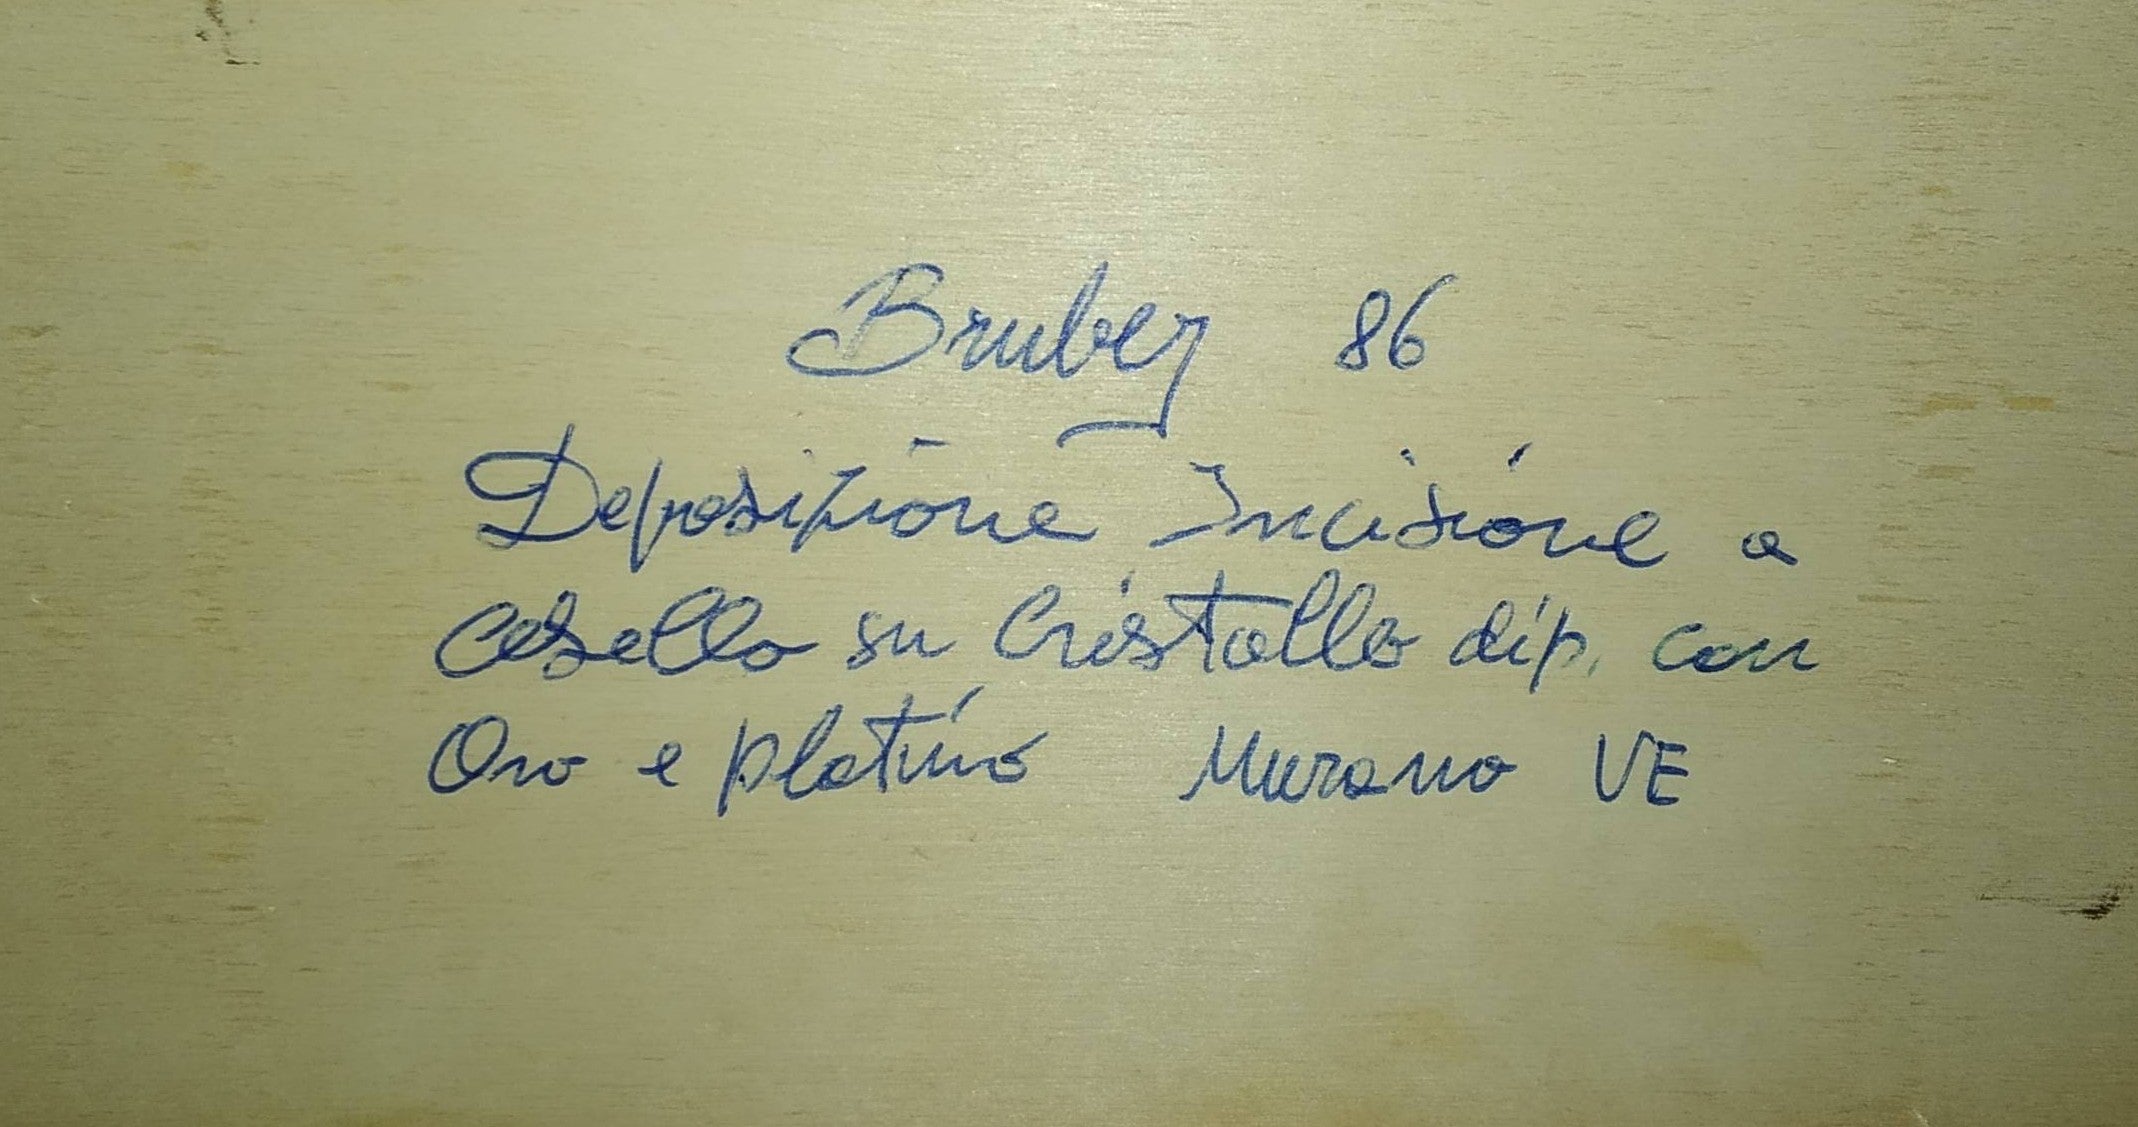 Brubez 86
Deposizione Incisione a
Cesello su Cristallo dip. con
Oro e platino Murano VE